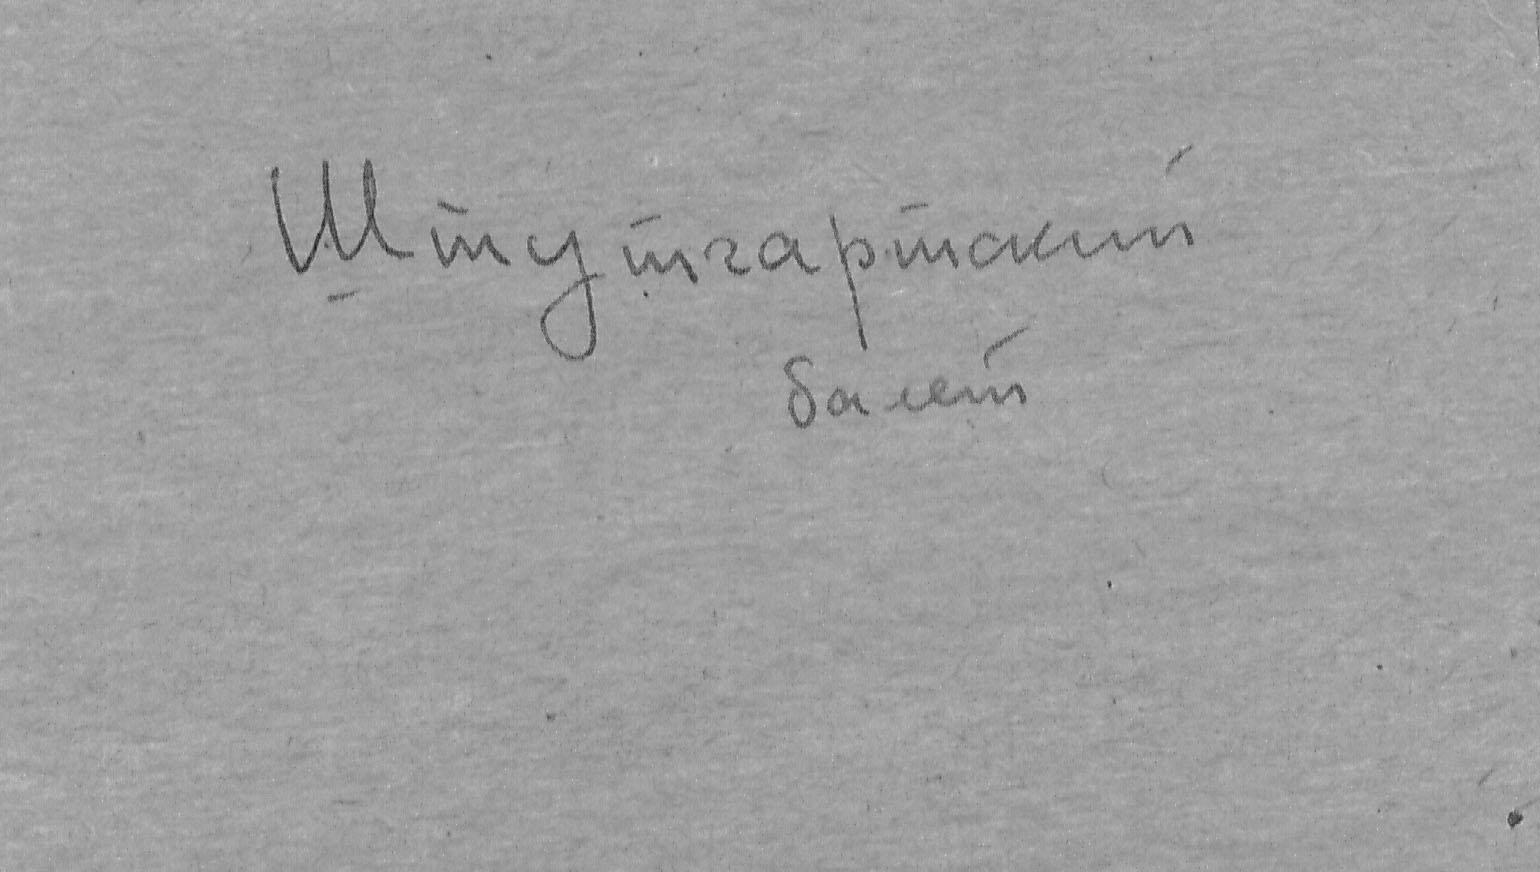 Штутгартский
балет